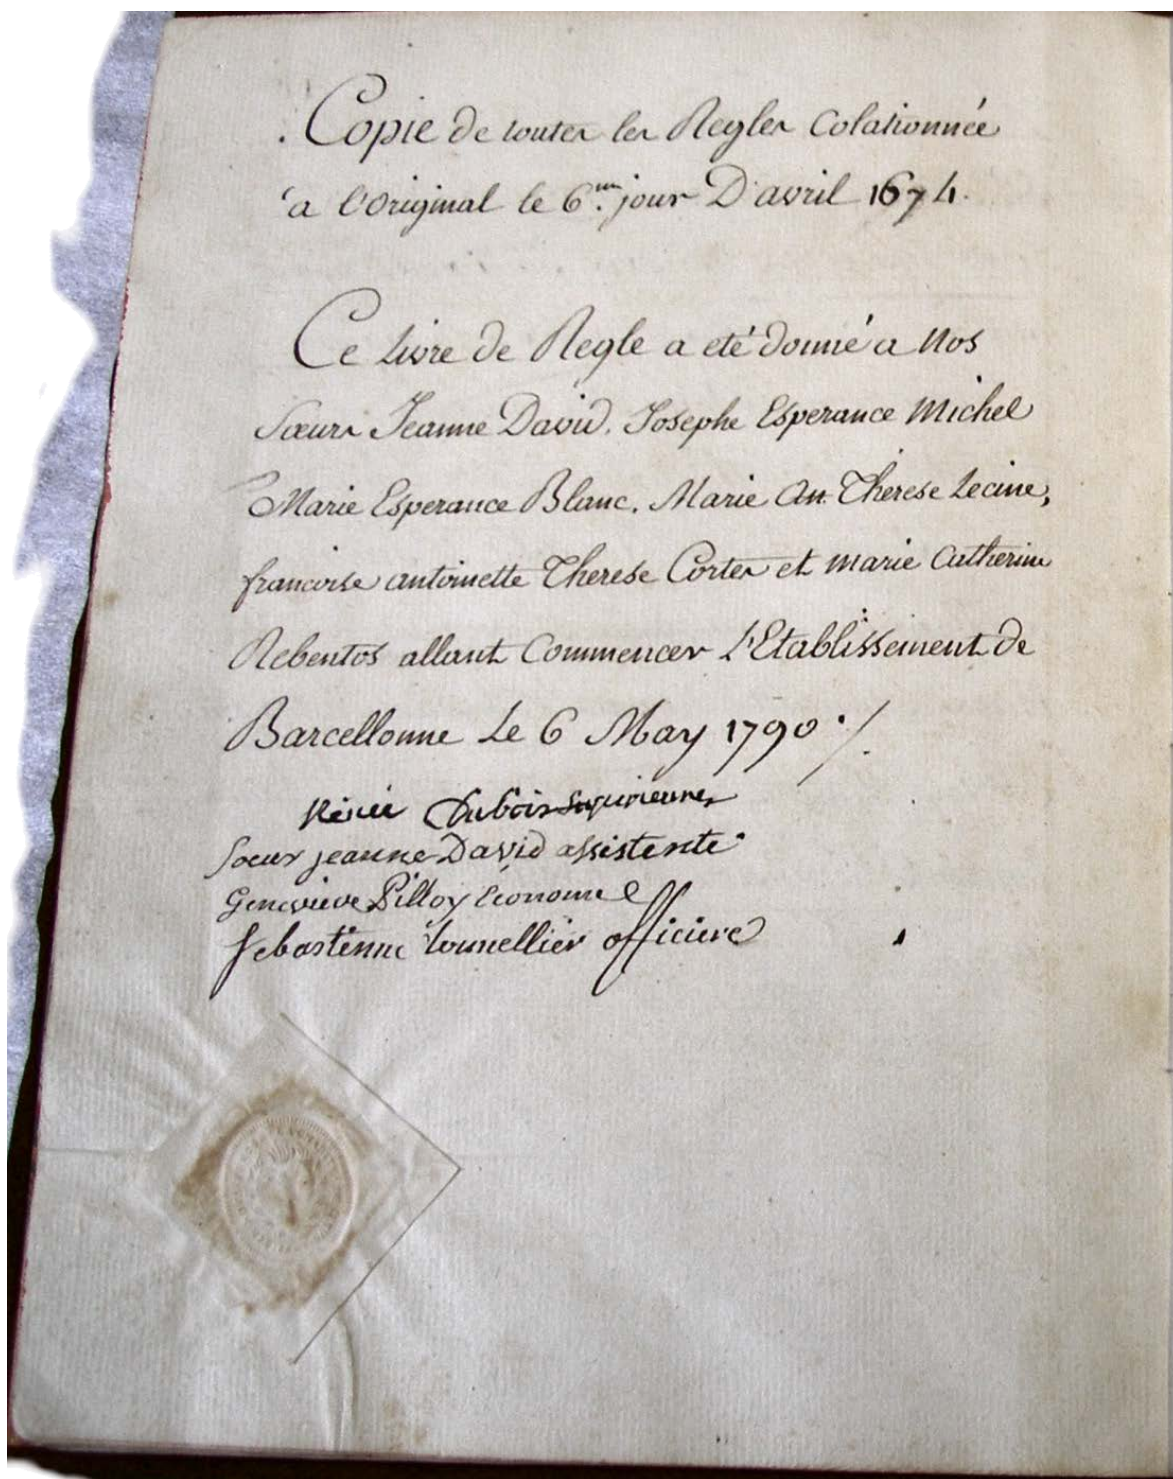 Copie de toutes les Regles Colationnée
a l'Original le 6.me jour D'avril 1674.
Ce Livre de Regle a eté donné a Nos
Sœurs Jeanne David, Josephe Esperance Michel
Marie Esperance Blanc, Marie An Therese Lecine,
francoise antoinette Therese Cortes et marie Catherine
Rebentos allant Commencer L'Etablissement de
Barcellonne Le 6 May 1790 ./.
Renée Dubois Superieure
Soeur jeanne David assistente
Genevieve Pilloy Économe
Sebastienne tounellier officiere